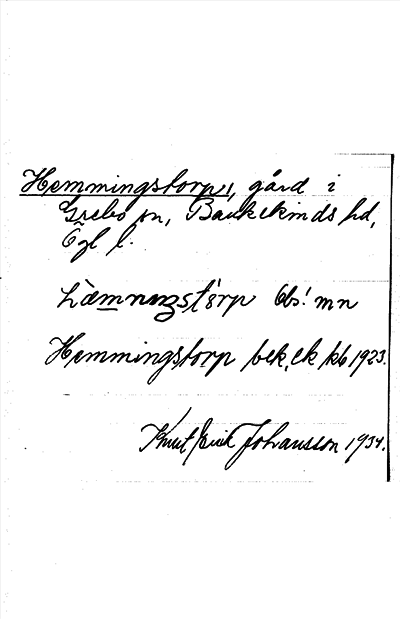 Hemmingstorp, gård i
Grebo sn, Bankekinds hd,
Ögl l.
hämnıŋstörp Obs! mn
Hemmingstorp bek. ek kb 1923.
Knut Erik Johansson 1934.